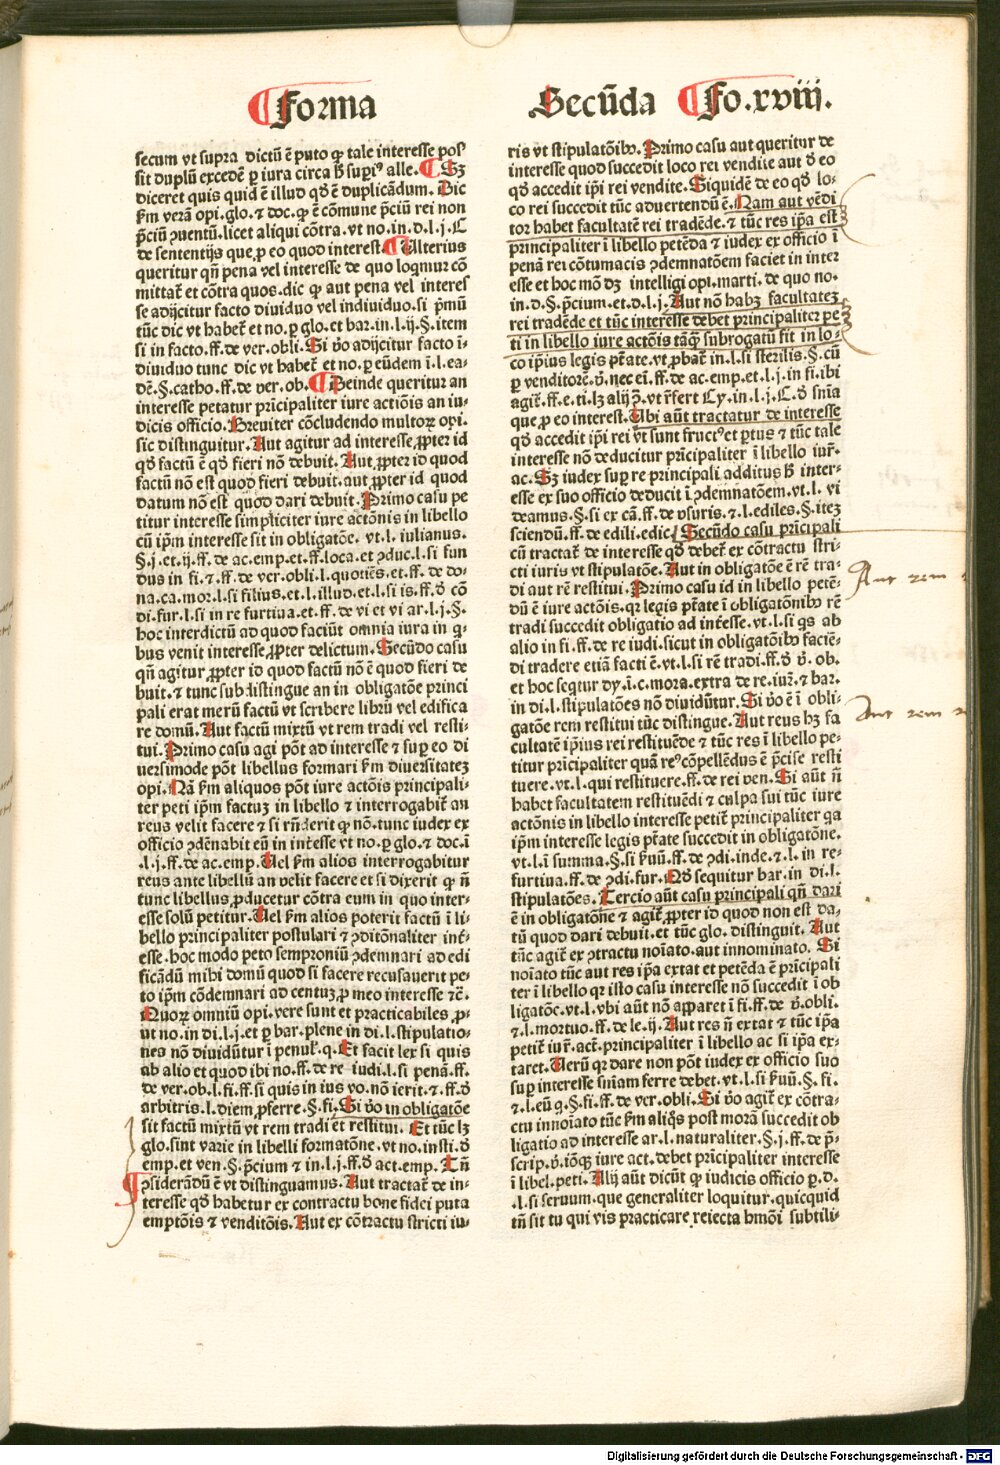 ¶Forma
Secūda ¶Fo.xviij.
secum vt supra dictū ē puto ꝙ tale interesse pos
sit duplū excedē ꝑ iura circa ħ suꝑiꝰ alle. ¶ Sꝫ
diceret quis quid ē illud qđ ē duplicādum. Dic
ẜm verā opi. glo. ⁊ doc. ꝙ ē cōmune p̄ciū rei non
p̄ciū ꝯuentū. licet aliqui cōtra. vt no. in. d. l. j. C
de sententijs que ꝓ eo quod interest. ¶ Ulterius
queritur qn̄ pena vel interesse de quo loqmur cō
mittat᷑ et cōtra quos. dic ꝙ aut pena vel interes
se adijcitur facto diuiduo vel indiuiduo. si pͥmū
tūc dic vt habet᷑ et no. ꝑ glo. et bar. in. l. ij. §. item
si in facto. ff. de ver. obli. Si v̄o adijcitur facto ī-
diuiduo tunc dic vt habet᷑ et no. ꝑ eūdem ī. l. ea-
dē. §. catho. ff. de ver. ob. ¶ Deinde queritur an
interesse petatur pͥncipaliter iure actiōis an iu-
dicis officio. Breuiter cōcludendo multoꝝ opi.
sic distinguitur. Aut agitur ad interesse ꝓpter id
qđ factū ē qđ fieri nō debuit. Aut ꝓpter id quod
factū nō est quod fieri debuit. aut ꝓpter id quod
datum nō est quod dari debuit. Primo casu pe
titur interesse simpliciter iure actōnis in libello
cū ip̄m interesse sit in obligatōe. vt. l. iulianus.
§. j. et. ij. ff. de ac. emp. et. ff. loca. et ꝯduc. l. si fun
dus in fi. ⁊. ff. de ver. obli. l. quotiēs. et. ff. de do-
na. ca. mor. l. si filius. et. l. illud. et. l. si is. ff. đ cō
di. fur. l. si in re furtiua. et. ff. de vi et vi ar. l. j. §.
hoc interdictū ad quod faciūt omnia iura in q̇-
bus venit interesse ꝓpter delictum. Secūdo casu
qn̄ agitur ꝓpter id quod factū nō ē quod fieri de
buit. ⁊ tunc subdistingue an in obligatōe princi
pali erat merū factū vt scribere librū vel edifica
re domū. Aut factū mixtū vt rem tradi vel resti-
tui. Primo casu agi pōt ad interesse ⁊ suꝑ eo di
uersimode pōt libellus formari ẜm diuersitateꝫ
opi. Nā ẜm aliquos pōt iure actōis principali-
ter peti ip̄m factuꝫ in libello ⁊ interrogabit᷑ an
reus velit facere ⁊ si rn̄derit ꝙ nō. tunc iudex ex
officio ꝯdēnabit eū in int̄esse vt no. ꝑ glo. ⁊ doc. ī
. l. j. ff. de ac. emp. Uel ẜm alios interrogabitur
reus ante libellū an velit facere et si dixerit ꝙ n̄
tunc libellus ꝓducetur cōtra eum in quo inter-
esse solū petitur. Uel ẜm alios poterit factū ī li-
bello principaliter postulari ⁊ ꝯditōnaliter int̄-
esse. hoc modo peto semproniū ꝯdemnari ad edi
ficādū mihi domū quod si facere recusauerit pe-
to ip̄m cōdemnari ad centuꝫ ꝓ meo interesse ⁊c̄.
Quoꝝ omniū opi. vere sunt et practicabiles ꝓ-
ut no. in di. l. j. et ꝑ bar. plene in di. l. stipulatio-
nes nō diuidūtur ī penul. q. Et facit lex si quis
ab alio et quod ibi no. ff. de re iudi. l. si penā. ff.
de ver. ob. l. fi. ff. si quis in ius vo. nō ierit. ⁊. ff. đ
arbitris. l. diem ꝓferre. §. fi. Si v̄o in obligatōe
sit factū mixtū vt rem tradi et restitui. Et tūc lꝫ
glo. sint varie in libelli formatōne. vt no. insti. đ
emp. et ven. §. p̄cium ⁊ in. l. j. ff. đ act. emp. Tn̄
ꝯsiderādū ē vt distinguamus. Aut tractat᷑ de in-
teresse qđ habetur ex contractu bone fidei puta
emptōis ⁊ venditōis. Aut ex cōtractu stricti iu-
ris vt stipulatōibꝰ. Primo casu aut queritur de
interesse quod succedit loco rei vendite aut đ eo
qđ accedit ip̄i rei vendite. Siquidē de eo qđ lo-
co rei succedit tūc aduertendū ē. Nam aut vēdi
tor habet facultatē rei tradēde. ⁊ tūc res ip̄a est
principaliter ī libello petēda ⁊ iudex ex officio ī
penā rei cōtumacis ꝯdemnatōem faciet in inter
esse et hoc mō dꝫ intelligi opi. marti. de quo no.
in. d. §. p̄cium. et. d. l. j. Aut nō habꝫ facultateꝫ
rei tradēde et tūc interesse debet principaliter pe
ti in libello iure actōis tāꝙ subrogatū sit in lo-
co ip̄ius legis pt̄ate. vt ꝓbat᷑ in. l. si sterilis. §. cū
ꝑ venditorē. v̄. nec eī. ff. de ac. emp. et. l. j. in fi. ibi
agit᷑. ff. e. ti. lꝫ alij ꝯ̄. vt r̄fert Cy. in. l. j. C. đ sn̄ia
que ꝓ eo interest. Ubi aūt tractatur de interesse
qđ accedit ip̄i rei vt sunt fructꝰ et ꝑtus ⁊ tūc tale
interesse nō deducitur pͥncipaliter ī libello iur᷑.
ac. Sꝫ iudex suꝑ re principali additus ħ inter-
esse ex suo officio deducit ī ꝯdemnatōem. vt. l. vi
deamus. §. si ex cā. ff. de vsuris. ⁊. l. ediles. §. iteꝫ
sciendū. ff. de edili. edic. Secūdo casu pͥncipali
cū tractat᷑ de interesse qđ debet᷑ ex cōtractu stri-
cti iuris vt stipulatōe. Aut in obligatōe ē rē tra-
di aut rē restitui. Primo casu id in libello petē-
dū ē iure actōis. qꝛ legis pt̄ate ī obligatōnibꝰ rē
tradi succedit obligatio ad int̄esse. vt. l. si qͥs ab
alio in fi. ff. de re iudi. sicut in obligatōibꝰ faciē-
di tradere etiā facti ē. vt. l. si rē tradi. ff. đ v̄. ob.
et hoc seqͥtur dy. ī. c. mora. extra de re. iur᷑. ⁊ bar.
in di. l. stipulatōes nō diuidūtur. Si v̄o ē ī obli-
gatōe rem restitui tūc distingue. Aut reus hꝫ fa
cultatē ip̄ius rei restituēde ⁊ tūc res ī libello pe-
titur pͥncipaliter quā reꝰ cōpellēdus ē p̄cise resti
tuere. vt. l. qui restituere. ff. de rei ven. Si aūt n̄
habet facultatem restituēdi ⁊ culpa sui tūc iure
actōnis in libello interesse petit᷑ principaliter qa
ip̄m interesse legis pt̄ate succedit in obligatōne.
vt. l. ī summa. §. si ẜuū. ff. de ꝯdi. inde. ⁊. l. in re-
furtiua. ff. de ꝯdi. fur. Qđ sequitur bar. in di. l.
stipulatōes. Tercio aūt casu principali qn̄ dari
ē in obligatōne ⁊ agit᷑ ꝓpter id quod non est da-
tū quod dari debuit. et tūc glo. distinguit. Aut
tūc agit᷑ ex ꝯtractu noīato. aut innominato. Si
noīato tūc aut res ip̄a extat et petēda ē pͥncipali
ter ī libello qꝛ isto casu interesse nō succedit ī ob
ligatōe. vt. l. vbi aūt nō apparet ī fi. ff. de v̄. obli.
⁊. l. mortuo. ff. de le. ij. Aut res n̄ extat ⁊ tūc ip̄a
petit᷑ iur᷑. act᷑. principaliter ī libello ac si ip̄a ex-
taret. Uerū qꝛ dare non pōt iudex ex officio suo
suꝑ interesse sn̄iam ferre debet. vt. l. si ẜuū. §. fi.
⁊. l. eū q̇. §. fi. ff. de ver. obli. Si v̄o agit᷑ ex cōtra-
ctu innoīato tūc ẜm aliqͥs post morā succedit ob
ligatio ad interesse ar. l. naturaliter. §. j. ff. de p̄-
scrip. v̄. iōqꝫ iure act. debet pͥncipaliter interesse
ī libel. peti. Alij aūt dicūt ꝙ iudicis officio ꝑ. d.
. l. si seruum. que generaliter loquitur. quicquid
tn̄ sit tu qui vis practicare reiecta hmōi subtili-
Aut rem
Aut rem
Digitalisierung gefördert durch die Deutsche Forschungsgemeinschaft - DFG